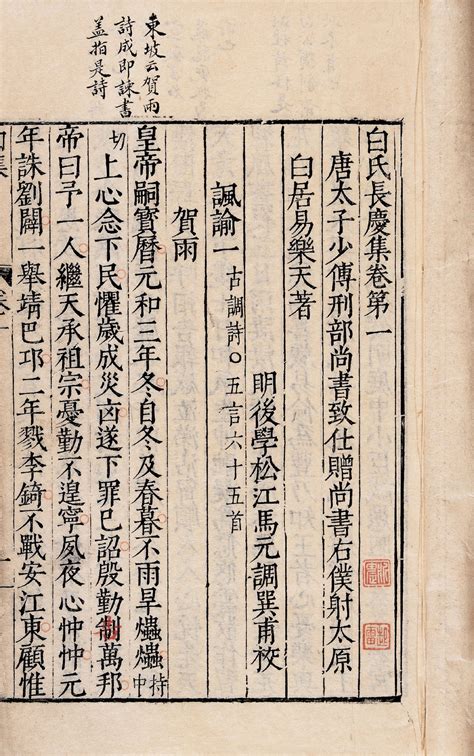 東坡云賀雨
詩成即諫書
盖指是詩
白氏長慶集卷第一
唐太子少傅刑部尚書致仕贈尚書右僕射太原
白居易樂天著
明後學松江馬元調巽甫校
諷諭一 古調詩〇五言六十五首
賀雨
皇帝嗣寶曆元和三年冬自冬及春暮不雨旱爞爞持中
切上心念下民懼歲成災凶遂下罪已詔殷勤制萬邦
帝曰予一人繼天承祖宗憂勤不遑寧夙夜心忡忡元
年誅劉闢一舉靖巴邛二年戮李錡不戰安江東顧惟